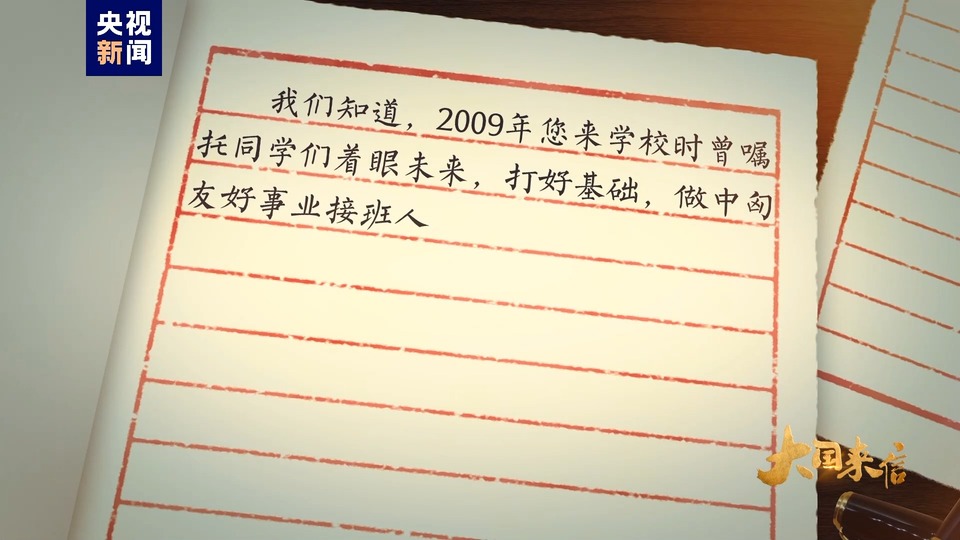 央视
新闻
我们知道，2009年您来学校时曾嘱
托同学们着眼未来，打好基础，做中匈
友好事业接班人
大国来信